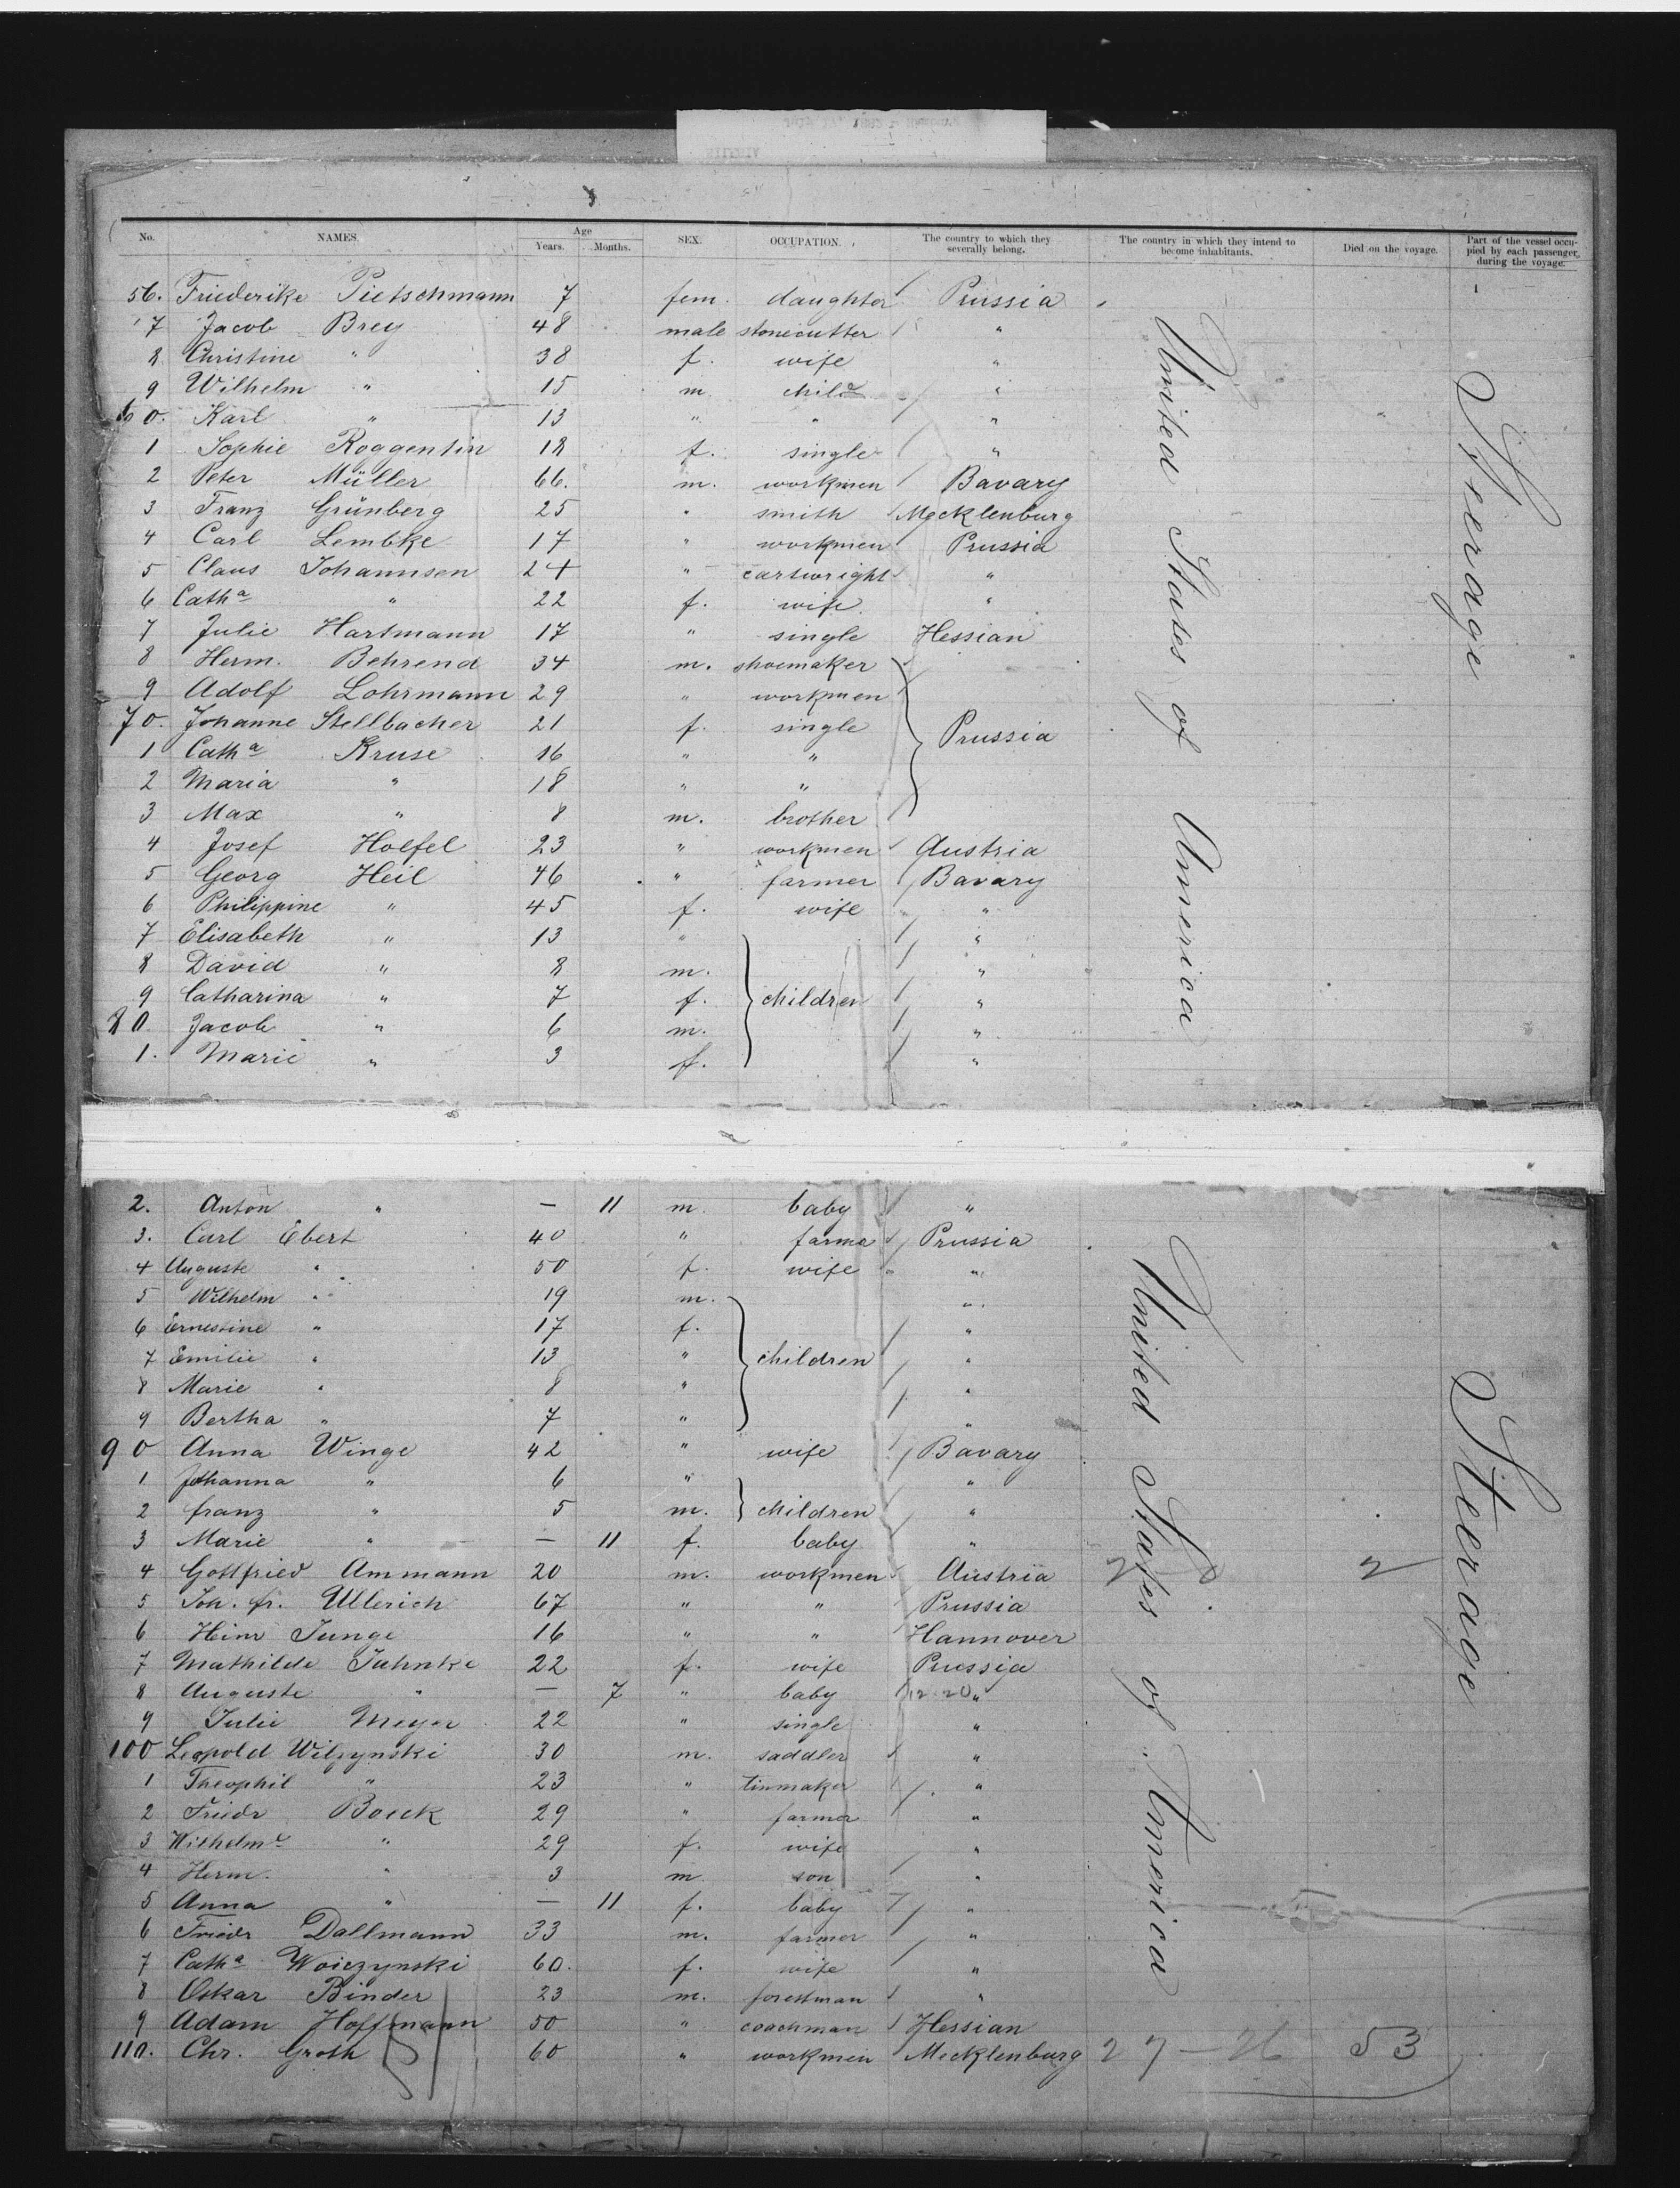 No. NAMES. Age Years. Months. SEX. OCCUPATION. The country to which they severally belong. The country in which they intend to become inhabitants. Died on the voyage. Part of the vessel occupied by each passenger, during the voyage.
56. Friederike Pietschmann 7 fem. daughter Prussia
7 Jacob Brey 48 male stonecutter "
8 Christine " 38 f. wife "
9 Wilhelm " 15 m child "
60. Karl " 13 " " "
1 Sophie Roggentin 18 f. single "
2 Peter Müller 66. m. workmen Bavary
3 Franz Grünberg 25 " smith Mecklenburg
4 Carl Lembke 17 " workmen Prussia
5 Claus Johannsen 24 " cartwright "
6 Catha " 22 f. wife "
7 Julie Hartmann 17 " single Hessian
8 Herm. Behrend 34 m. shoemaker
9 Adolf Lohrmann 29 " workmen
70. Johanne Stellbacher 21 f. single Prussia
1 Catha Kruse 16 " "
2 Maria " 18 " "
3 Max " 8 m. brother
4 Josef Hoefel 23 " workmen Austria
5 Georg Heil 46 " farmer Bavary
6 Philippine " 45 f. wife "
7 Elisabeth " 13 " "
8 David " 8 m. "
9 Catharina " 7 f. children "
80 Jacob " 6 m. "
1. Marie " 3 f. "
United States of America
Steerage
2. Anton " — 11 m. baby "
3. Carl Ebert 40 " farma Prussia
4 Auguste " 50 f. wife "
5 Wilhelm " 19 m. "
6 Ernestine " 17 f. "
7 Emilie " 13 " children "
8 Marie " 8 " "
9 Bertha " 7 " "
90 Anna Winge 42 " wife Bavary
1 Johanna " 6 " "
2 franz " 5 m. children "
3 Marie " — 11 f. baby "
4 Gottfried Ammann 20 m. workmen Austria 2
5 Joh. fr. Ullerich 67 " " Prussia
6 Heinr Junge 16 " " Hannover
7 Mathilde Jahnke 22 f. wife Prussia
8 Auguste " — 7 " baby "
9 Julie Meyer 22 " single "
100 Leopold Wilzynski 30 m. saddler "
1 Theophil " 23 " tinmaker "
2 Friedr Boeck 29 " farmer "
3 Wilhelme " 29 f. wife "
4 Herm. " 3 m son "
5 Anna " — 11 f. baby "
6 Friedr Dallmann 33 m. farmer "
7 Catha Woiczynski 60. f. wife "
8 Oskar Binder 23 m. forestman "
9 Adam Hoffmann 50 " coachman Hessian
110. Chr. Groth 60 " workmen Mecklenburg 27 — 26 53
United States of America
Steerage